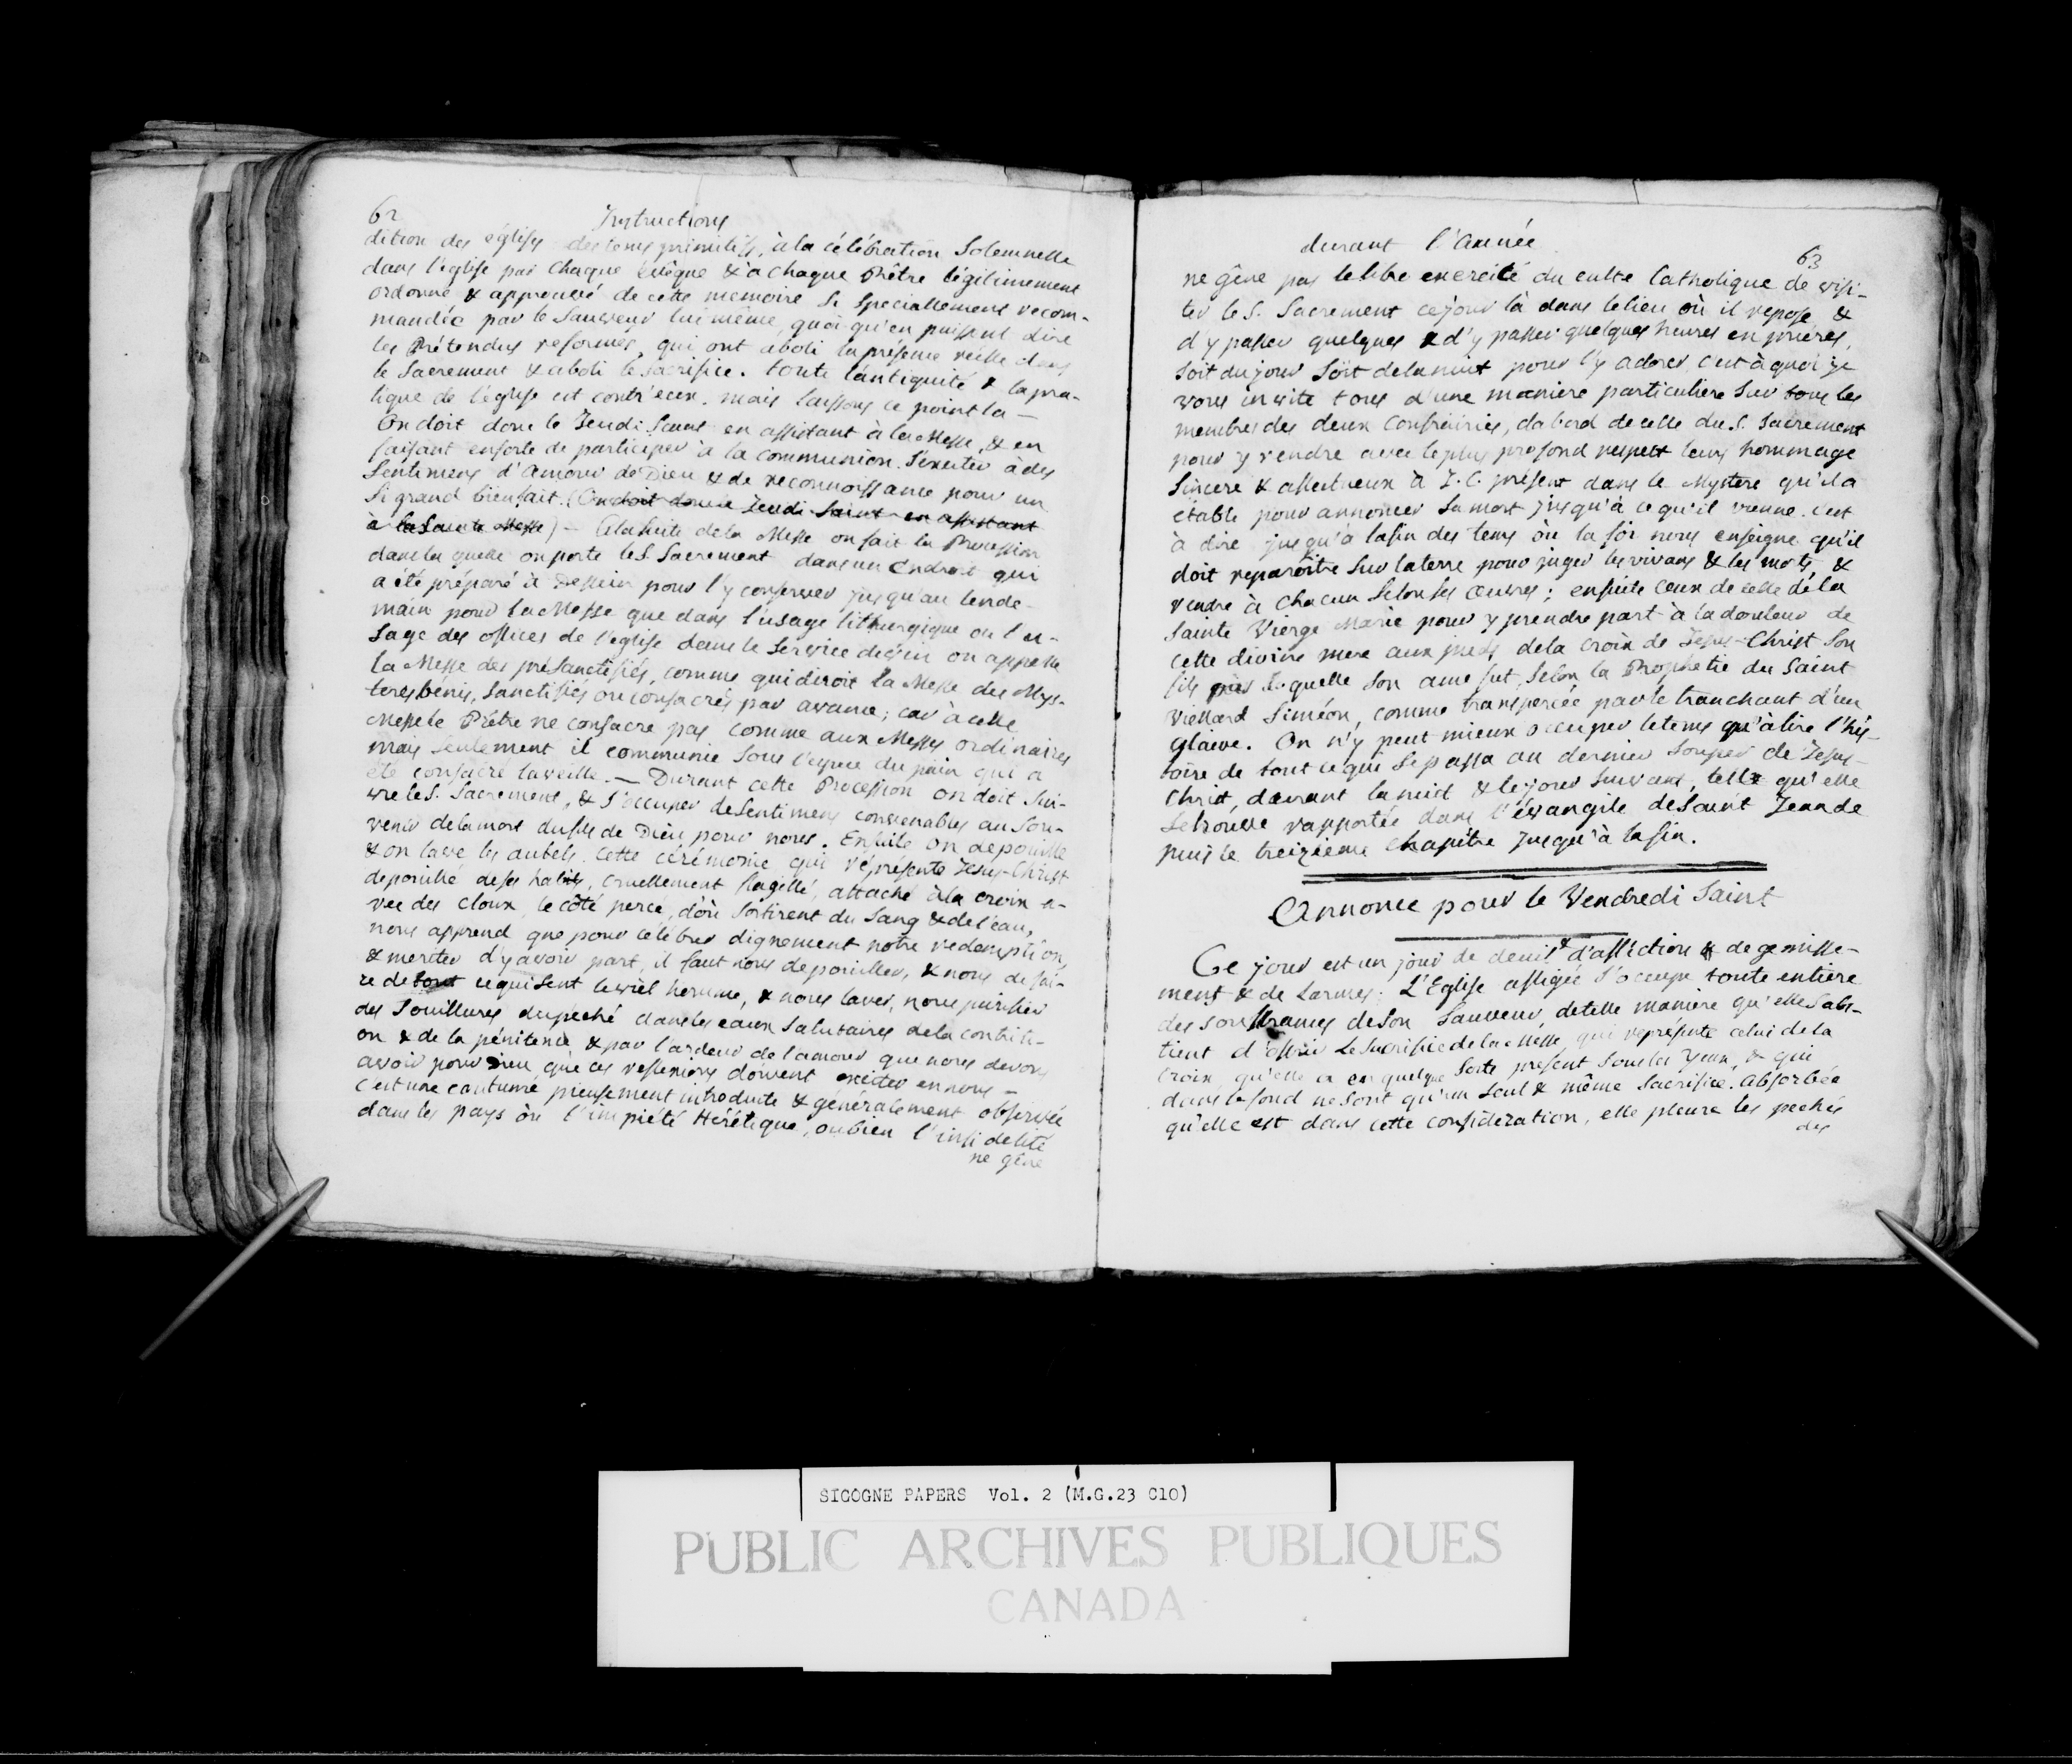 62
Instructions
dition des églises des tems primitifs, à la célébration Solemnelle
dans l'église par chaque évêque & à chaque Prêtre légitimement
ordonné & approuvé de cette memoire si specialement recom-
mandée par le Sauveur lui même, quoi-qu'en puissent dire
les Prétendus reformés, qui ont aboli la présence réelle dans
le Sacrement & aboli le Sacrifice. toute l'antiquité & la pra-
tique de l'église est contr'eux. mais laissons ce point la —
On doit donc le Jeudi Saint en assistant à la Messe, & en
faisant ensorte de participer à la communion. S'exciter à des
Sentimens d'amour de Dieu & de reconnoissance pour un
si grand bienfait. (On doit donc le Jeudi Saint en assistant
à la Sainte Messe) — A la suite de la Messe on fait la Procession
dans la quelle on porte le S. Sacrement dans un Endroit qui
a été préparé à Dessein pour l'y conserver jusqu'au lende-
main pour la Messe que dans l'usage lithurgique ou l'u-
sage des offices de l'église dans le Service divin on appelle
la Messe des préSanctifiés, comme qui diroit la Messe des Mys-
teres bénis, Sanctifiés ou consacrés par avance; car à cette
Messe le Prêtre ne consacre pas comme aux Messes ordinaires
mais seulement il communie sous l'espece du pain qui a
été consacré la veille. — Durant cette Procession on doit Sui-
vre le S. Sacrement, & s'occuper de Sentimens convenables au Sou-
venir de la mort du fils de Dieu pour nous. Ensuite on depouille
& on lave les autels. Cette cérémonie qui réprésente Jesus-Christ
depouillé de ses habits, cruellement flagellé, attaché à la croix a-
vec des cloux, le côté percé, d'où Sortirent du Sang & de l'eau,
nous apprend que pour célébrer dignement notre redemption,
& meriter d'y avoir part, il faut nous depouiller, & nous defai-
re de tout ce qui sent le vieil homme, & nous laver, nous purifier
des Souillures du peché dans les eaux Salutaires de la contriti-
on & de la pénitence & par l'ardeur de l'amour que nous devons
avoir pour Dieu, que ces reflexions doivent exciter en nous —
C'est une coutume pieusement introduite & généralement observée
dans les pays où l'impiété Hérétique, ou bien l'infidelité
ne gêne
durant l'Année
63
ne gêne pas le libre exercice du culte Catholique de visi-
ter le S. Sacrement ce jour là dans le lieu où il repose, &
d'y passer quelques & d'y passer quelques heures en prières,
Soit du jour Soit de la nuit pour l'y adorer. C'est à quoi je
vous invite tous d'une manière particuliere Sur tous les
membres des deux Confréiries, dabord de celle du S. Sacrement
pour y rendre avec le plus profond respect leurs hommage
Sincere & affectueux à J. C. présent dans le Mystere qu'il a
établi pour annoncer sa mort jusqu'à ce qu'il vienne. C'est
à dire jusqu'à la fin des tems où la foi nous enseigne qu'il
doit reparoître Sur la terre pour juger les vivans & les morts &
rendre à chacun Selon Ses œuvres; ensuite ceux de celle de la
Sainte Vierge Marie pour y prendre part à la douleur de
cette divine mere aux pieds de la Croix de Jesus-Christ Son
fils près laquelle Son ame fut, Selon la Prophetie du Saint
Viellard Siméon, comme transpercée par le tranchant d'un
Glaive. On n'y peut mieux occuper le tems qu'à lire l'his-
toire de tout ce qui Se passa au dernier Souper de Jesus-
Christ, durant la nuit & le jour Suivant, telle qu'elle
Se trouve rapportée dans l'évangile de Saint Jean de
puis le treizieme chapitre jusqu'à la fin.
Annonce pour le Vendredi Saint
Ce jour est un jour de deuil & d'affliction & de gemisse-
ment & de larmes. L'Eglise affligée S'occupe toute entiere
des souffrances de Son Sauveur, de telle manière qu'elle S'abs-
tient d'offrir le Sacrifice de la Messe, qui représente celui de la
Croix, qu'elle a en quelque Sorte présent Sous les yeux, & qui
dans le fond ne Sont qu'un Seul & même Sacrifice. Absorbée
qu'elle est dans cette considération, elle pleure les pechés
des
SICOGNE PAPERS Vol. 2 (M.G.23 C10)
PUBLIC ARCHIVES PUBLIQUES
CANADA